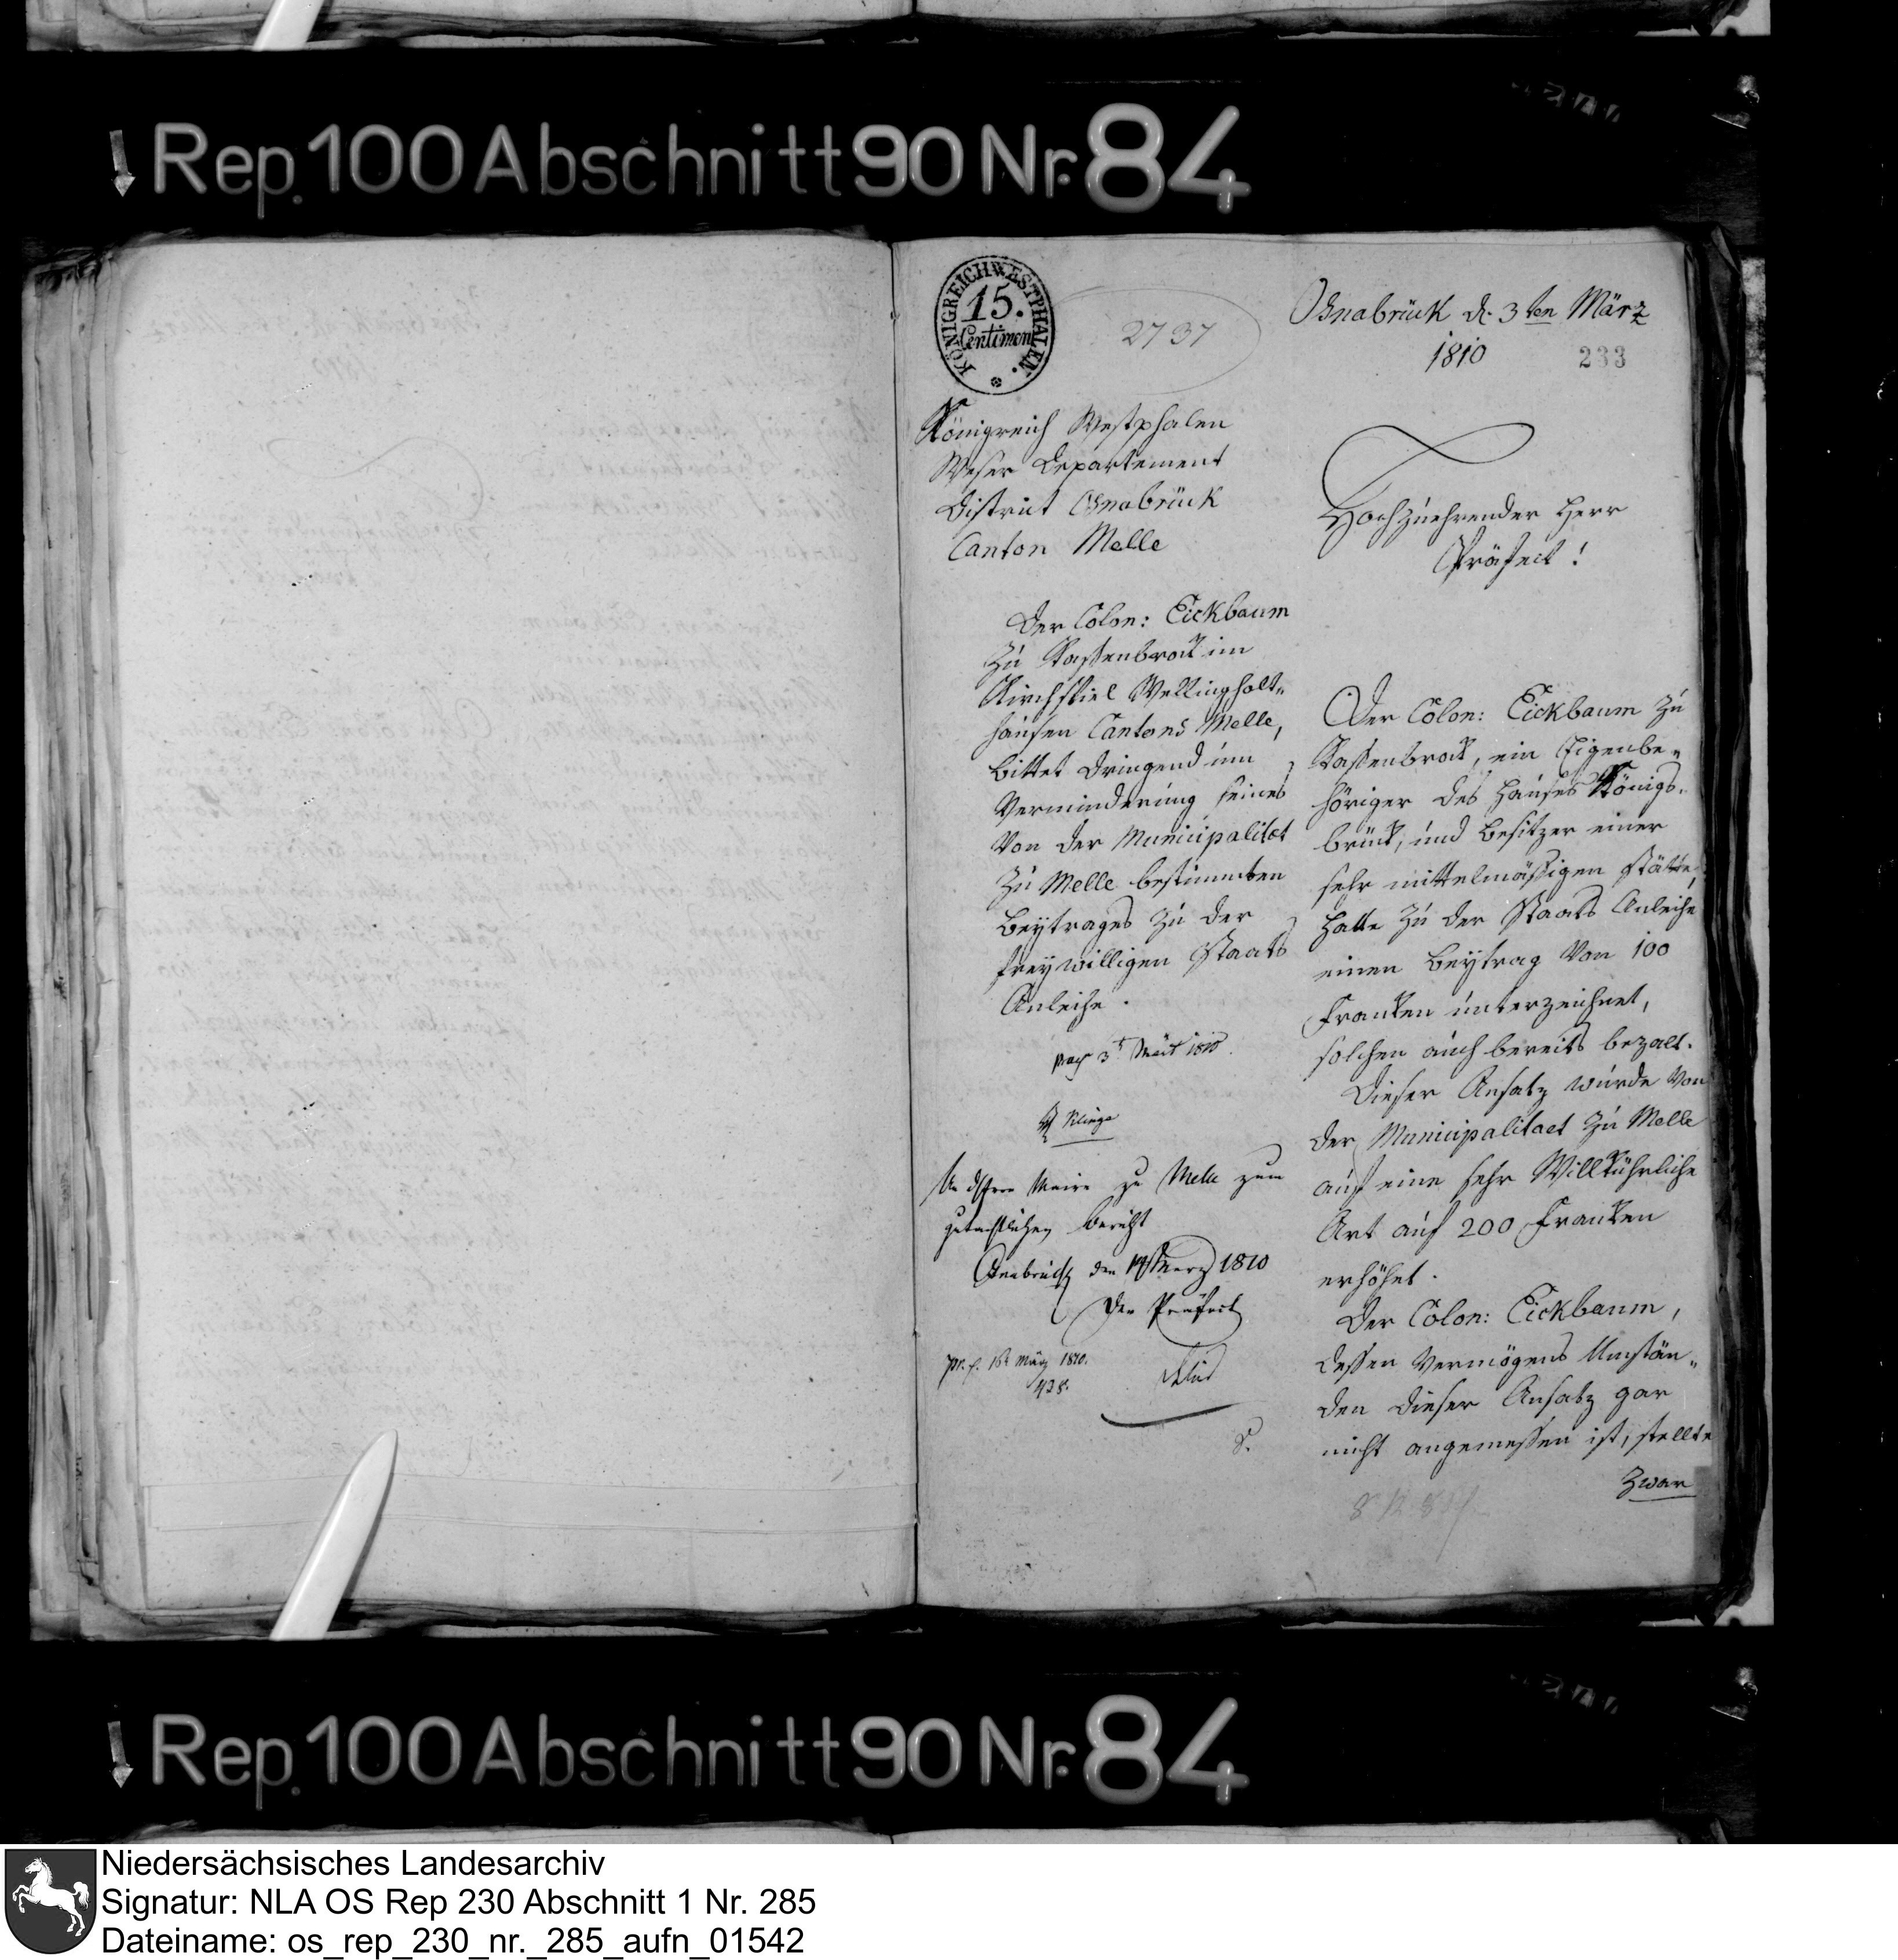 Rep. 100 Abschnitt 90 Nr. 84
KÖNIGREICH WESTPHALEN.
15.
Centimen
2737
Osnabrück d. 3ten März
1810
233
Königreich Westphalen
Weser Departement
District Osnabrück
Canton Melle
Hochzuehrender Herr
Präfect!
Der Colon: Eickbaum
zu Kaßenbrock im
Kirchspiel Wellingholt„
hausen Cantons Melle,
bittet dringend um
Verminderung seines
von der Municipalitet
zu Melle bestimmten
Beytrages zu der
freywilligen Staats
Anleihe.
3t 1810.
Klinge
An Herrn Maire zu Melle zum
gutachtlichen Bericht
Osnabrück den März 1810
Der Präfect
März 1810.
Der Colon: Eickbaum zu
Kaßenbrock, ein Eigenbe„
höriger des Hauses Königs„
brück, und Besitzer einer
sehr mittelmäßigen Stätte,
hatte zu der Staats Anleihe
einen Beytrag von 100
Franken unterzeichnet,
solchen auch bereits bezalt.
Dieser Ansatz wurde von
der Municipalitaet zu Melle
auf eine sehr Willkührliche
Art auf 200 Franken
erhöhet.
Der Colon: Eickbaum,
dessen Vermögens Umstän„
den dieser Ansatz gar
nicht angemeßen ist, stellte
zwar
Rep. 100 Abschnitt 90 Nr. 84
Niedersächsisches Landesarchiv
Signatur: NLA OS Rep 230 Abschnitt 1 Nr. 285
Dateiname: os_rep_230_nr._285_aufn_01542